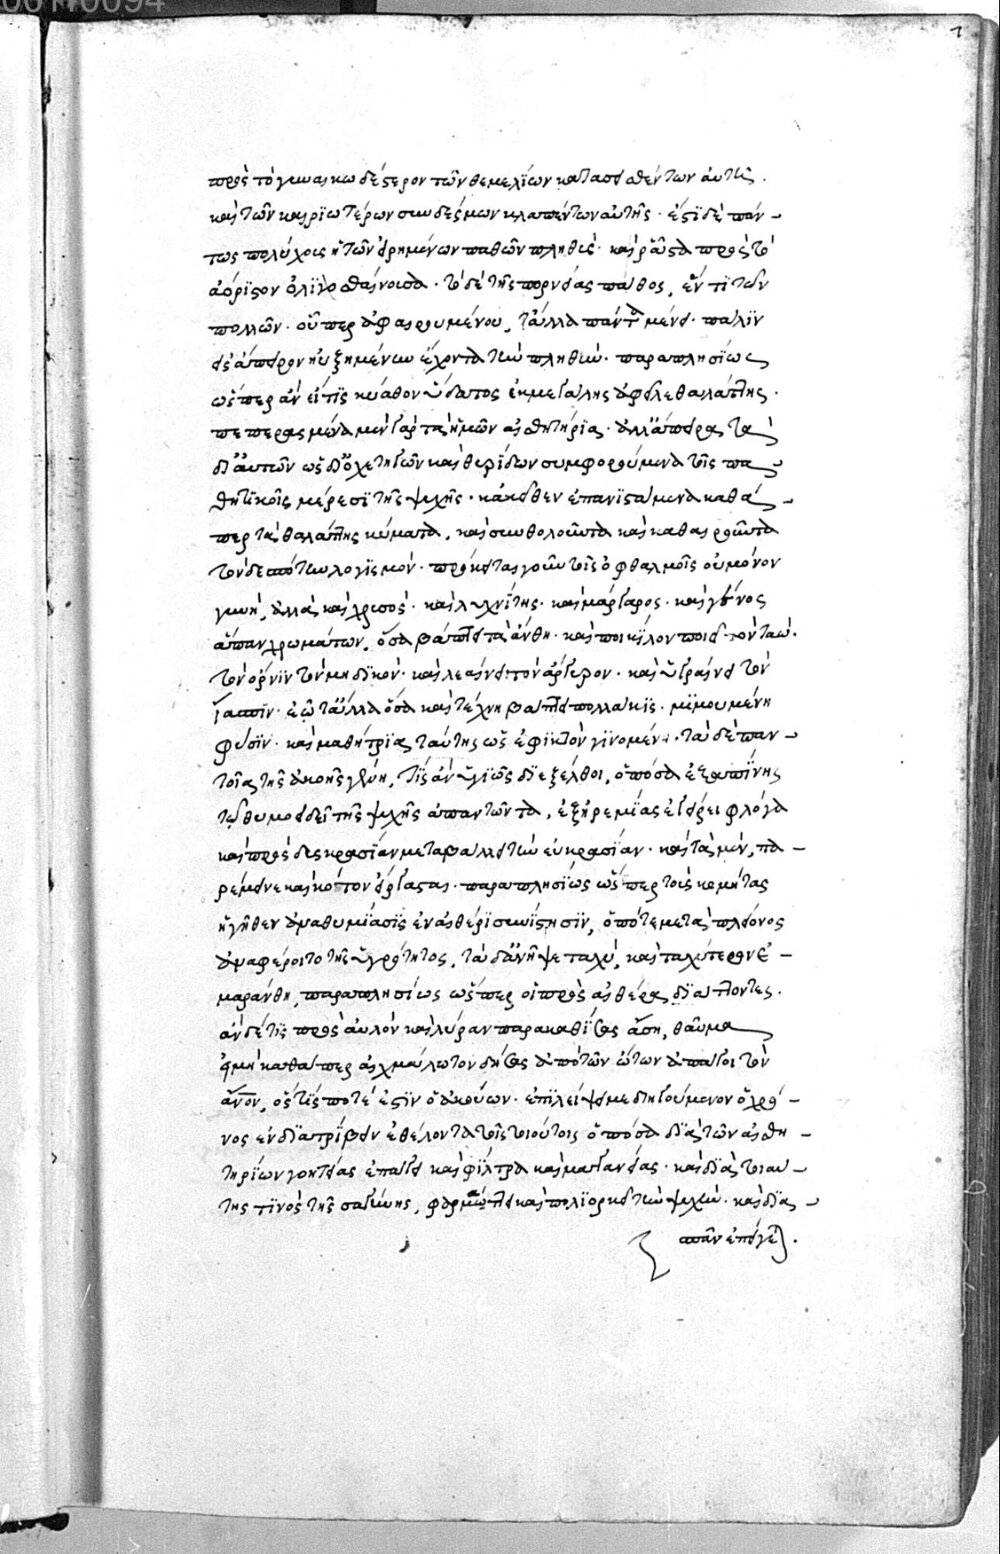 πρὸς τὸ γυναικωδέστερον τῶν θεμελίων κατασεισθέντων αὐτῆς.
καὶ τῶν καιριωτέρων συνδέσμων κλαπέντων αὐτῆς· ἔστι δὲ πάν-
τως πολύχους ἡ τῶν εἰρημένων παθῶν πληθύς· καὶ ῥᾶστα πρὸς τὸ
ἀόριστον ὀλισθαίνουσα· τὸ δὲ τῆς πορνείας πάθος, ἕν τι τῶν
πολλῶν· οὗπερ ἀφαιρουμένου, τἄλλα πάντα μένει· πάλιν
εἰς ἄπειρον ηὐξημένην ἔχοντα τὴν πληθύν· παραπλησίως
ὥσπερ ἂν εἴ τις κύαθον ὕδατος ἐκ μεγάλης ἀφέλε θαλάττης·
πεπερασμένα μὲν γὰρ τὰ ἡμῶν αἰσθητήρια· ἀλλ' ἄπειρα τὰ
δι' αὐτῶν ὡς δι' ὀχετηγῶν καὶ θυρίδων συμφορούμενα τοῖς πα
θητικοῖς μέρεσι τῆς ψυχῆς· κἀκεῖθεν ἐπανιστάμενα καθά-
περ τὰ θαλάττης κύματα, καὶ συνθολοῦντα καὶ καθαιροῦντα
τὸν δεσπότην λογισμόν· πρόκειται γοῦν τοῖς ὀφθαλμοῖς οὐ μόνον
γυνή, ἀλλὰ καὶ χρυσός· καὶ λυχνίτης· καὶ μάργαρος· καὶ γένος
ἅπαν χρωμάτων, ὅσα βάπτει τὰ ἄνθη· καὶ ποικίλον ποιεῖ τὸν ταώ·
τὸν ὄρνιν τὸν μηδικόν· καὶ λεαίνει τὸν ἄργυρον· καὶ ὑγραίνει τὸν
ἴασπιν· ἐῶ τἄλλα ὅσα καὶ τέχνη βάπτει πολλάκις· μιμουμένη
φύσιν· καὶ μαθήτρια ταύτης ὡς ἐφικτὸν γινομένη· τὰ δὲ παν-
τοῖα τῆς ἀκοῆς γένη, τίς ἂν ὑγιῶς διεξέλθοι, ὁπόσα ἐξαπίνης
τῷ θυμοειδεῖ τῆς ψυχῆς ἀπαντῶντα, ἐξ ἠρεμίας ἐγείρει φλόγα
καὶ πρὸς δυσκρασίαν μεταβάλλει τὴν εὐκρασίαν· καὶ τὰ μὲν, πα-
ρέμεινε καὶ κόπτον εἰργάσας· παραπλησίως ὥσπερ τοὺς κομήτας
ἡ γῆθεν ἀναθυμίασις ἐν αἰθέρι συνίστησιν, ὁπότε μετὰ πλείονος
ἀναφέροιτο τῆς ὑγρότητος, τὰ δ' ἀνῆψε ταχύ, καὶ ταχύτερον ἐ-
μαράνθη, παραπλησίως ὥσπερ οἱ πρὸς αἰθέρα διάττοντες·
ἂν δέ τις πρὸς αὐλὸν καὶ λύραν παρακαθίσας ᾄσῃ, θαῦμα
εἰ μὴ καθάπερ αἰχμάλωτον δήσας ἀπὸ τῶν ὤτων ἀπάγοι τὸν
ἄνον, ὅστίς ποτέ ἐστιν ὁ ἀκούων· ἐπιλείψει με διηγούμενον ὁ χρό-
νος ἐνδιατρίβειν ἐθέλοντα τοῖς τοιούτοις ὁπόσα διὰ τῶν αἰσθη-
τηρίων γοητείας ἐπάγει καὶ φίλτρα καὶ μαγγανείας· καὶ διὰ τοιαύ-
της τινὸς τῆς σαγήνης, φαρμάττει καὶ πολιορκεῖ τὴν ψυχήν· καὶ διὰ